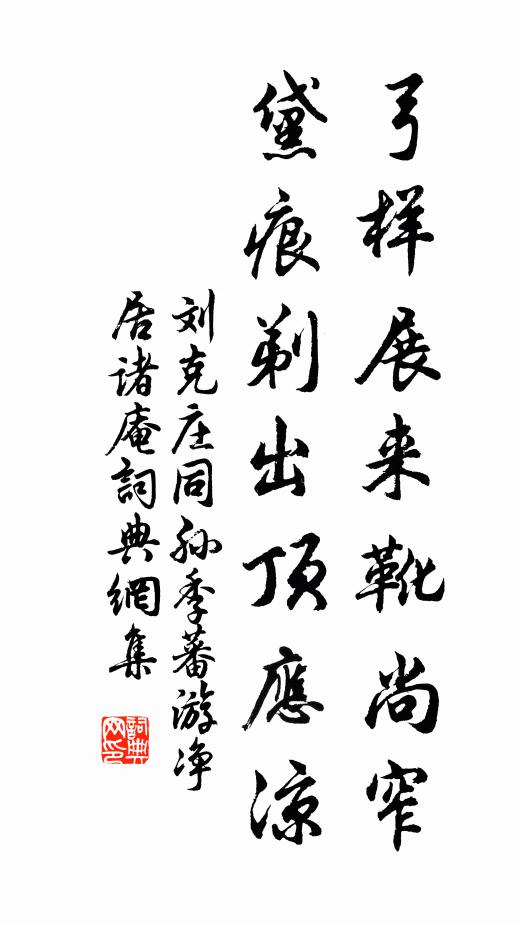 弓样展来靴尚窄
黛痕剃出顶應凉
刘克庄同孙季蕃游净
居诸庵詞典網集
詞典网印